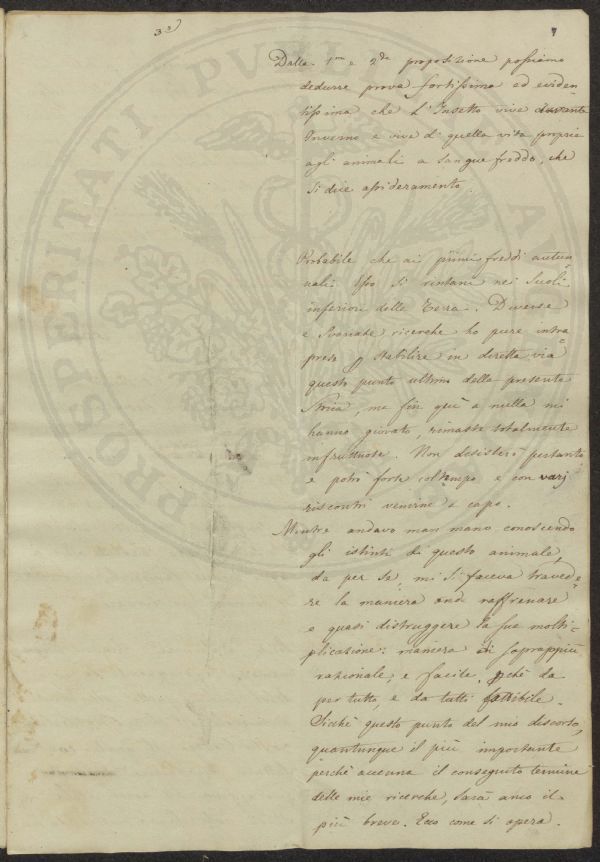 3 a)
7
Dalla 1ma e 2da proposizione possiamo
dedurre prova fortissima ed eviden
tissima che l'Insetto vive durante
Inverno e vive di quella vita propria
agli animali a sangue freddo, che
si dice assideramento.
Probabile che ai primi freddi autun
nali Esso si rintani nei Suoli
inferiori della Terra. Diverse
e Svariate ricerche ho pure intra
prese p stabilire in diretta via
questo punto ultimo della presente
Storia, ma fin quì a nulla mi
hanno giovato, rimaste totalmente
infruttuose. Non desisterò pertanto
e potrò forse col tempo e con varj
riscontri venirne a capo.
Mentre andavo man mano conoscendo
gli istinti di questo animale,
da per se, mi si faceva travede=
re la maniera onde raffrenare
e quasi distruggere la sua molti=
plicazione: maniera di soprappiù
razionale, e facile, pchè da
per tutto, e da tutti fattibile.
Sicchè questo punto del mio discorso,
quantunque il più importante
perchè accenna il conseguito termine
delle mie ricerche, sarà anco il
più breve. Ecco come si opera.
PROSPERITATI PUBLICAE